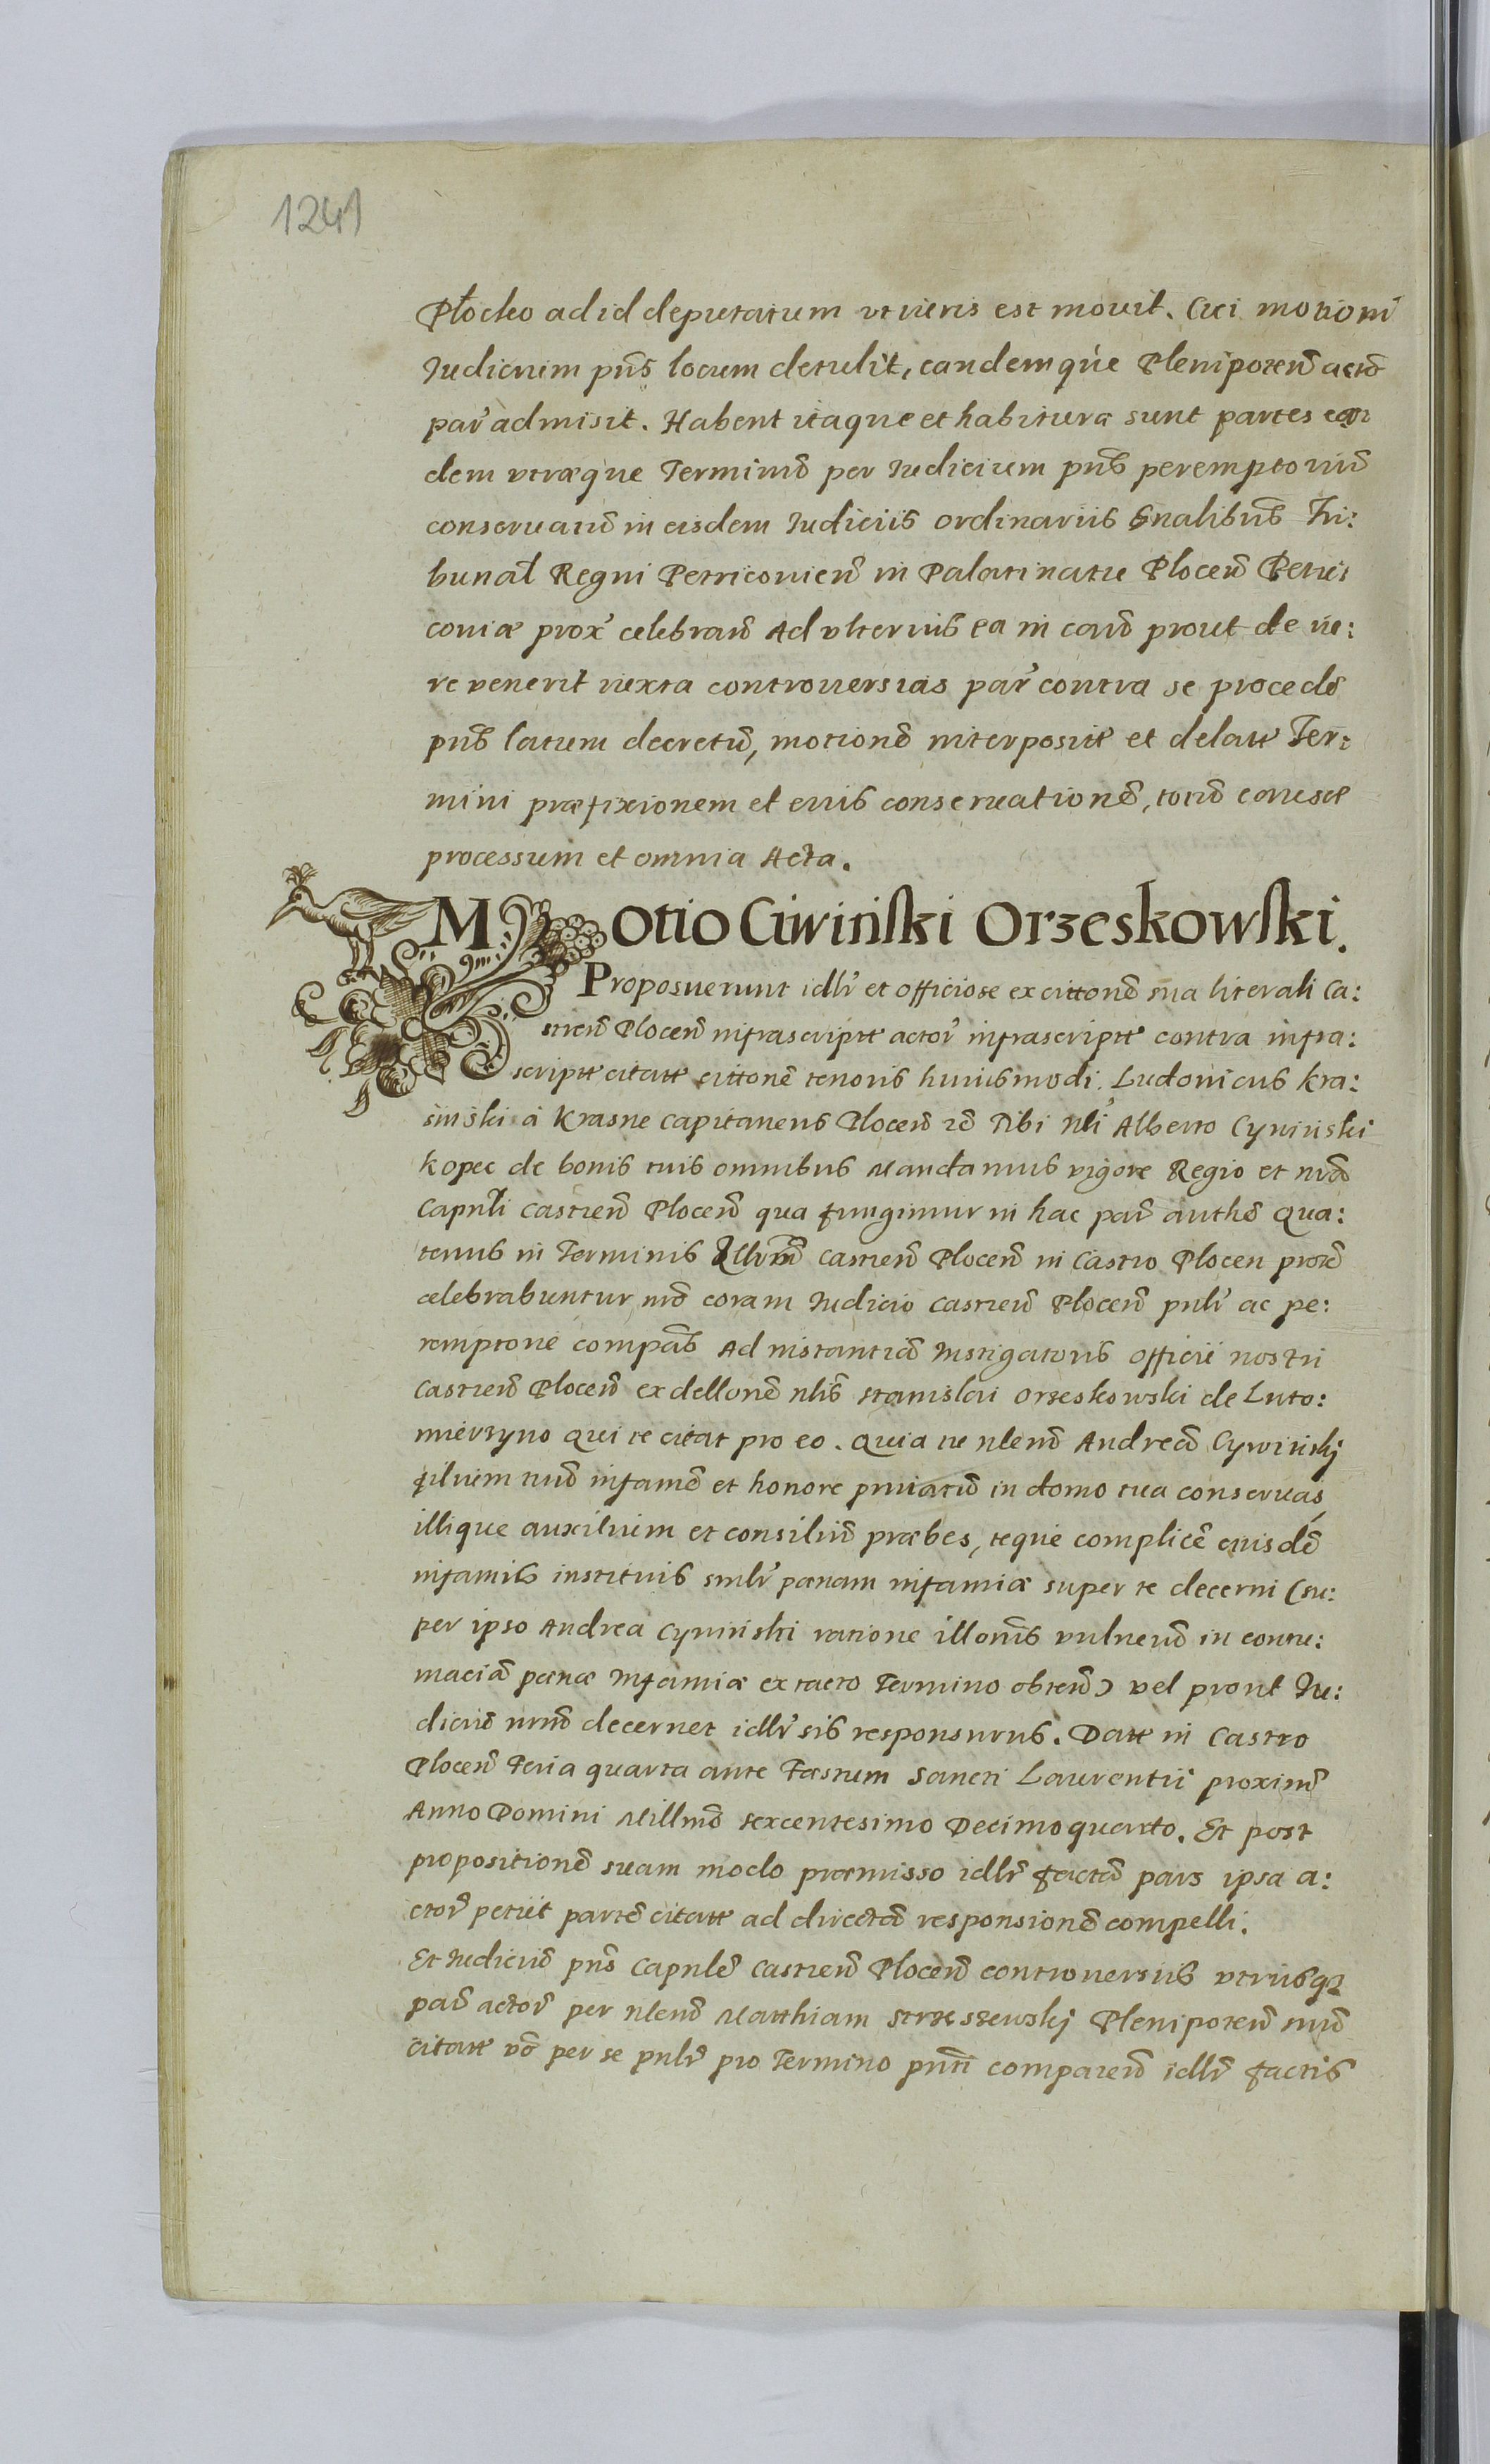 1241
Płocko ad id deputatum ut iuris est movit. Cui motioni
Iudicium pns̃ locum detulit, eandemque Plenipoteñ acto
par̃ admisit. Habent itaque et habitura sunt partes eaꝝ
dem utraeque Terminũ per Iudicium pnS̃ peremptoriũ
conservatũ in eisdem Iudiciis ordinariis Gnalibus Tri:
bunal Regni Petricovieñ in Palatinatu Ploceñ Petri:
coviæ prox̃ celebrañ Ad ulterius ea in cauS̃ prout de iu:
re venerit iuxta controversias par̃ contra se procedẽ
pnS̃ latum decretũ, motionẽ interposite et delate Ter:
mini præfixionem et eius conservationẽ, totũ causæ
processum et omnia Acta.
Motio Ciwiński Orzeskowski.
Proposuerunt idlr̃ et officiose ex cittonẽ sua literali Ca:
streñ Ploceñ infrascripte actor̃ infrascripte contra infra:
scripte citate cittonẽ tenoris huiusmodi. Ludovicus Kra:
sinski à Krasne Capitaneus Ploceñ rẽ Tibi Nli Alberto Cywiński
Kopec de bonis tuis omnibus Mandamus vigore Regio et nrã
Capnli Castreñ Ploceñ qua fungimur in hac par̃ authẽ Qua:
tenus in Terminis Qllrũ Castreñ Ploceñ in Castro Plocen prox̃
celebrabuntur mõ coram Iudicio Castreñ Ploceñ pnlr̃ ac pe:
remptorie compãS Ad instantiã Instigatoris Officii nostri
Castreñ Ploceñ ex dellonẽ nliS̃ Stanislai Orzeskowski de Luto:
miersyno qui te citat pro eo. Quia tu nlenũ Andreã Cywiński
filium tuũ infamẽ et honore privatũ in domo tua conservas
illique auxilium et consiliũ præbes, teque complicẽ eiusdẽ
infamis instituis smlr̃ pœnam infamiæ super te decerni (su:
per ipso Andrea Cywiński ratione illoniS̃ vulnerũ in contu:
maciã pœnæ Infamiæ ex tacto Termino obteñ) vel prout Iu:
diciũ nrũ decernet idlr̃ sis responsurus. Date in Castro
Ploceñ Feria quarta ante Festum Sancti Laurentii proximã
Anno Domini Millmõ sexcentesimo Decimoquarto. Et post
propositionẽ suam modo præmisso idlr̃ factã pars ipsa a:
ctor̃ petiit partẽ citate ad directã responsionẽ compelli.
Et Iudiciũ pnS̃ Capnlẽ Castreñ Ploceñ controversiis utriusqꝫ
par̃ actor̃ per nlenũ Matthiam Strzeszewskj Plenipoteñ suũ
citate võ per se pnlr̃ pro Termino pnti compareñ idlr̃ factis